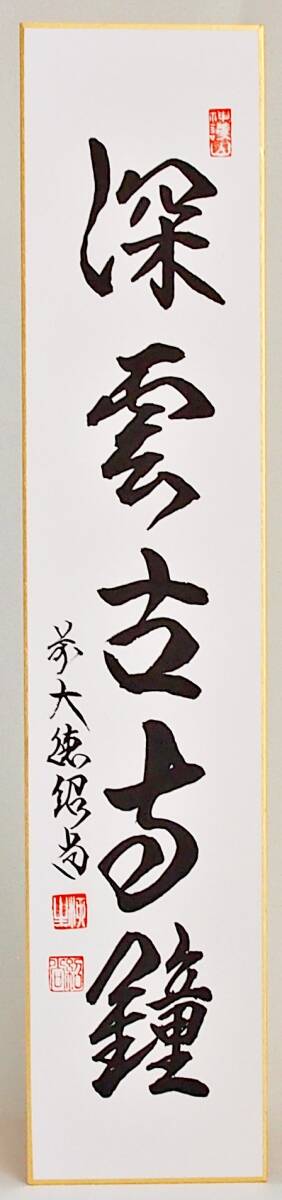 深雲古寺鐘
前大徳紹尚